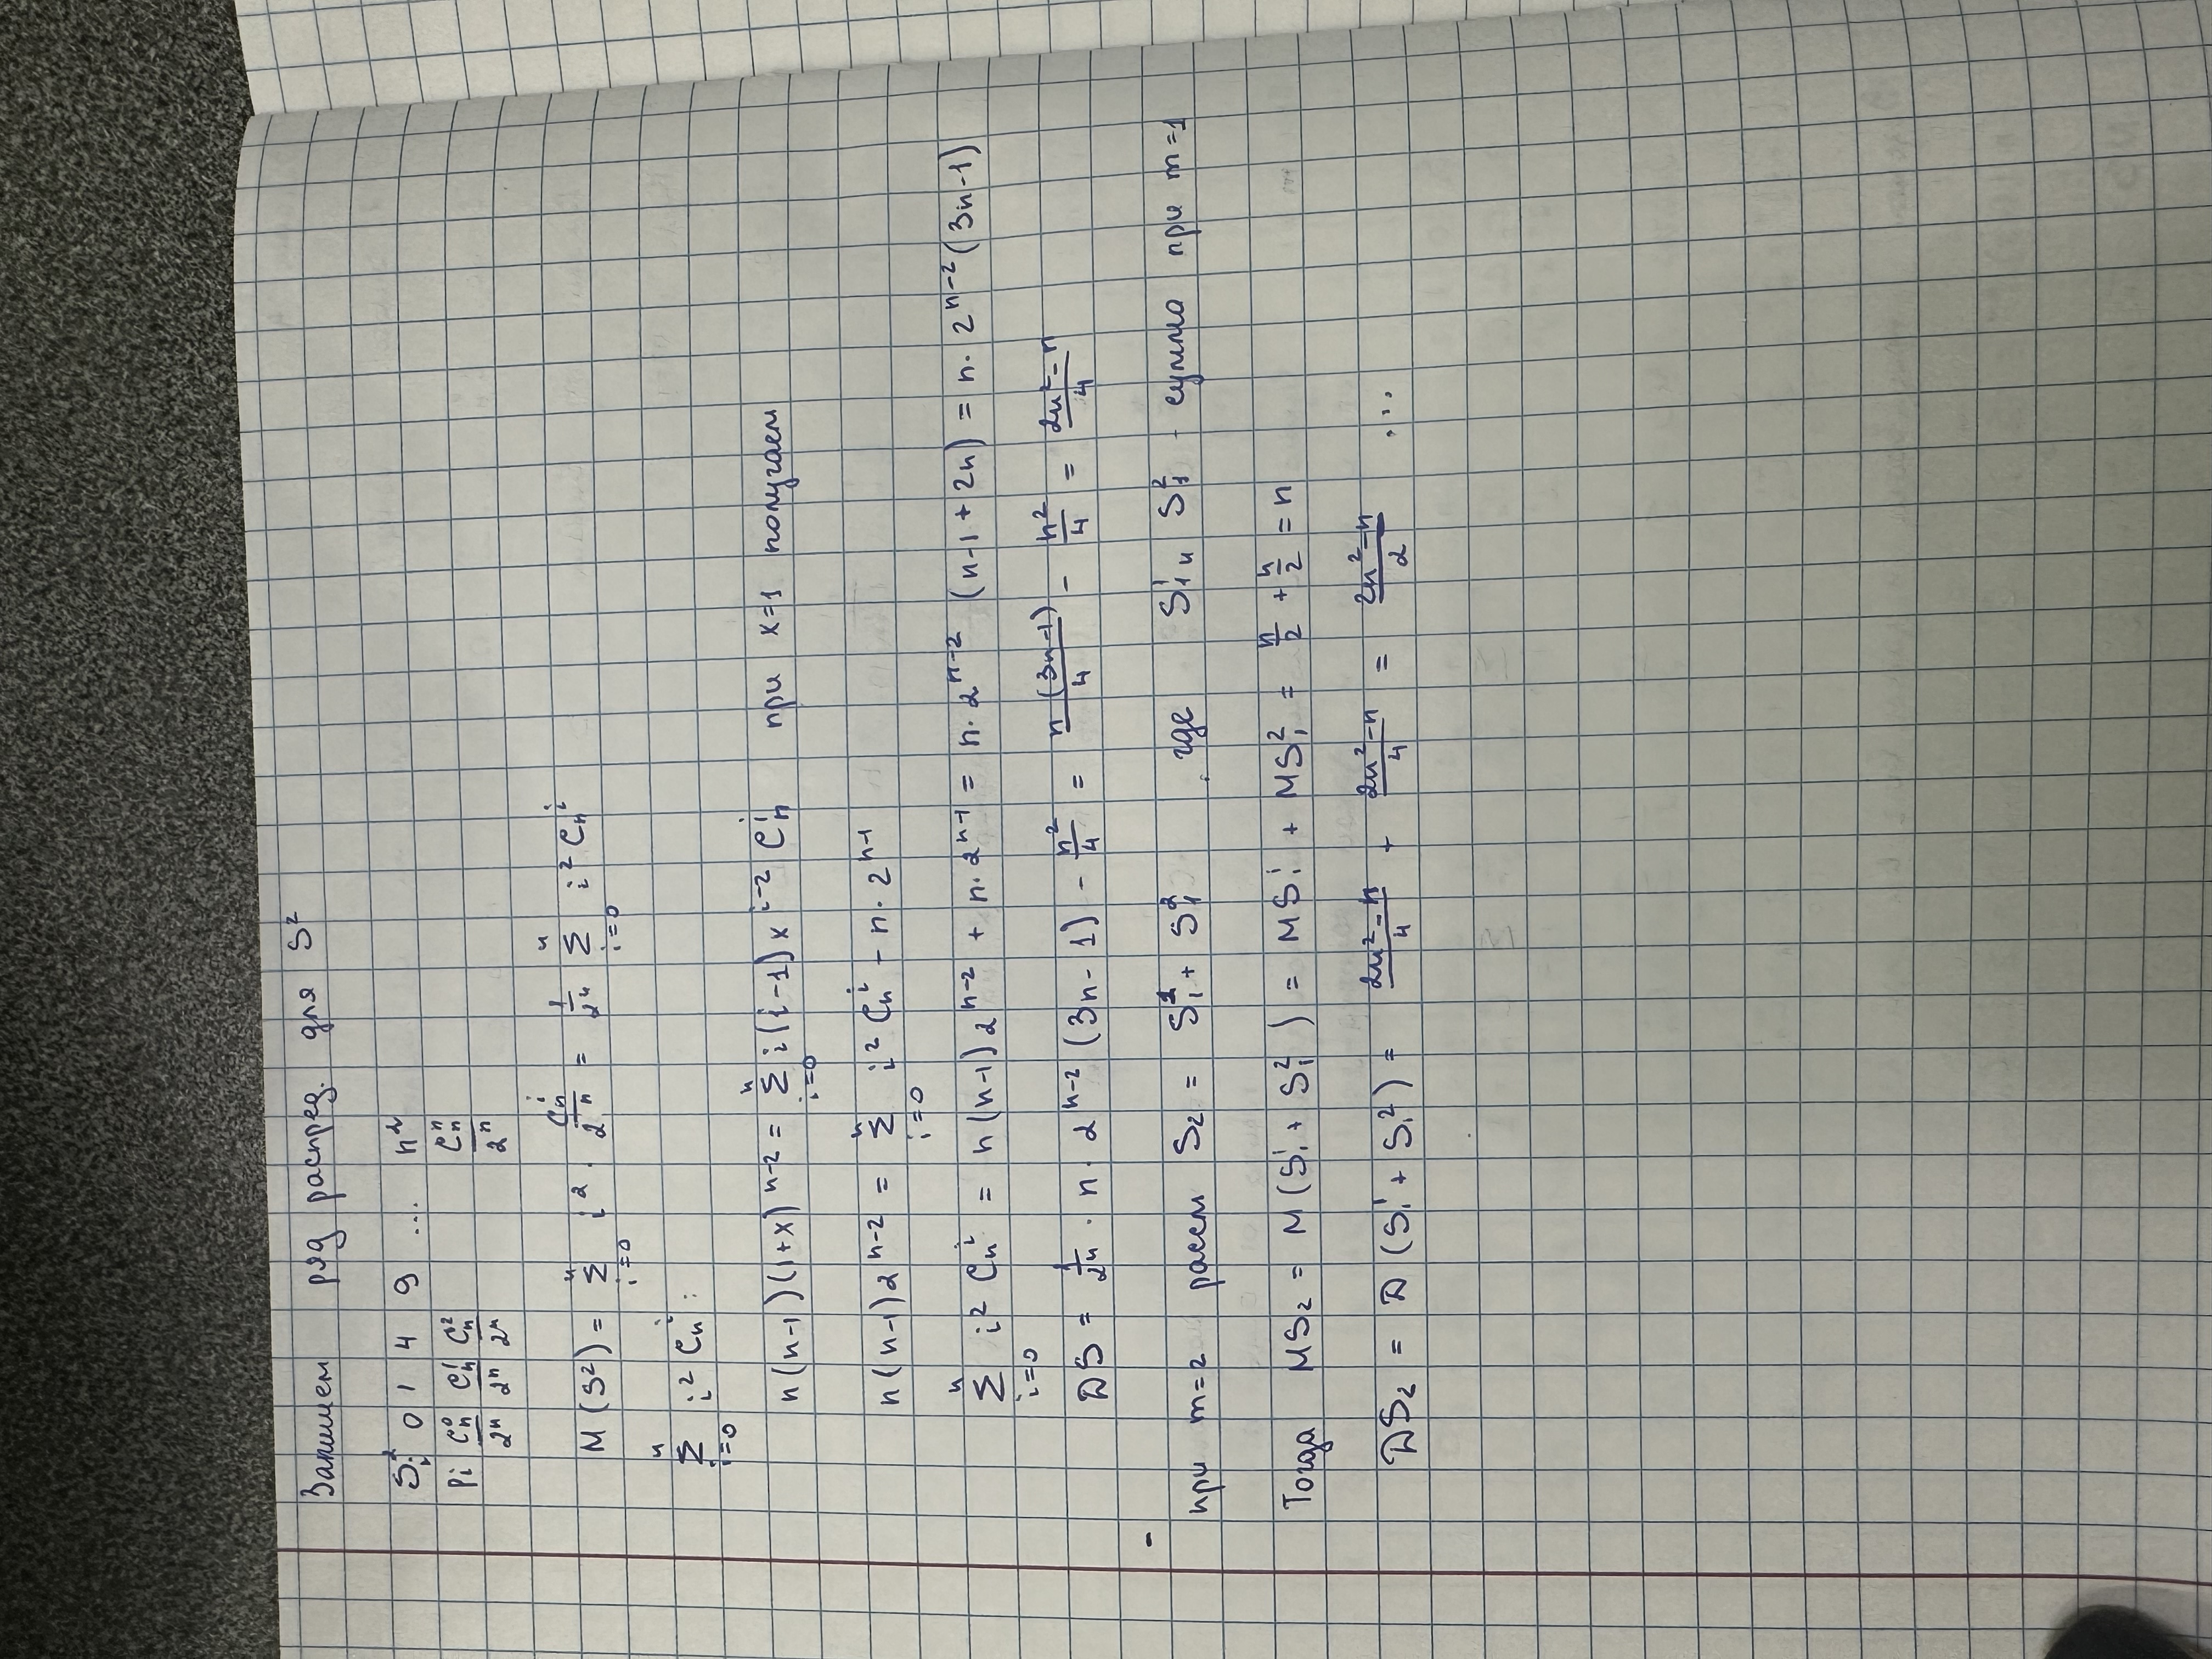 Запишем ряд распред. для S²
Sᵢ² 0 1 4 9 ... n²
Pi Cₙ⁰/2ⁿ Cₙ¹/2ⁿ Cₙ²/2ⁿ Cₙⁿ/2ⁿ
M(S²) = Σ_{i=0}^{n} i² · Cₙⁱ/2ⁿ = 1/2ⁿ Σ_{i=0}^{n} i² Cₙⁱ
Σ_{i=0}^{n} i² Cₙⁱ :
n(n-1)(1+x)ⁿ⁻² = Σ_{i=0}^{n} i(i-1)xⁱ⁻² Cₙⁱ при x=1 получаем
n(n-1)2ⁿ⁻² = Σ_{i=0}^{n} i² Cₙⁱ - n·2ⁿ⁻¹
Σ_{i=0}^{n} i² Cₙⁱ = n(n-1)2ⁿ⁻² + n·2ⁿ⁻¹ = n·2ⁿ⁻² (n-1+2n) = n·2ⁿ⁻²(3n-1)
DS = 1/2ⁿ · n · 2ⁿ⁻² (3n-1) - n²/4 = n(3n-1)/4 - n²/4 = (2n²-n)/4
при m=2 рассм S₂ = S₁¹ + S₁² , где S₁¹ и S₁² - сумма при m=1
Тогда MS₂ = M(S₁¹ + S₁²) = MS₁¹ + MS₁² = n/2 + n/2 = n
DS₂ = D(S₁¹ + S₁²) = (2n²-n)/4 + (2n²-n)/4 = (2n²-n)/2 ...